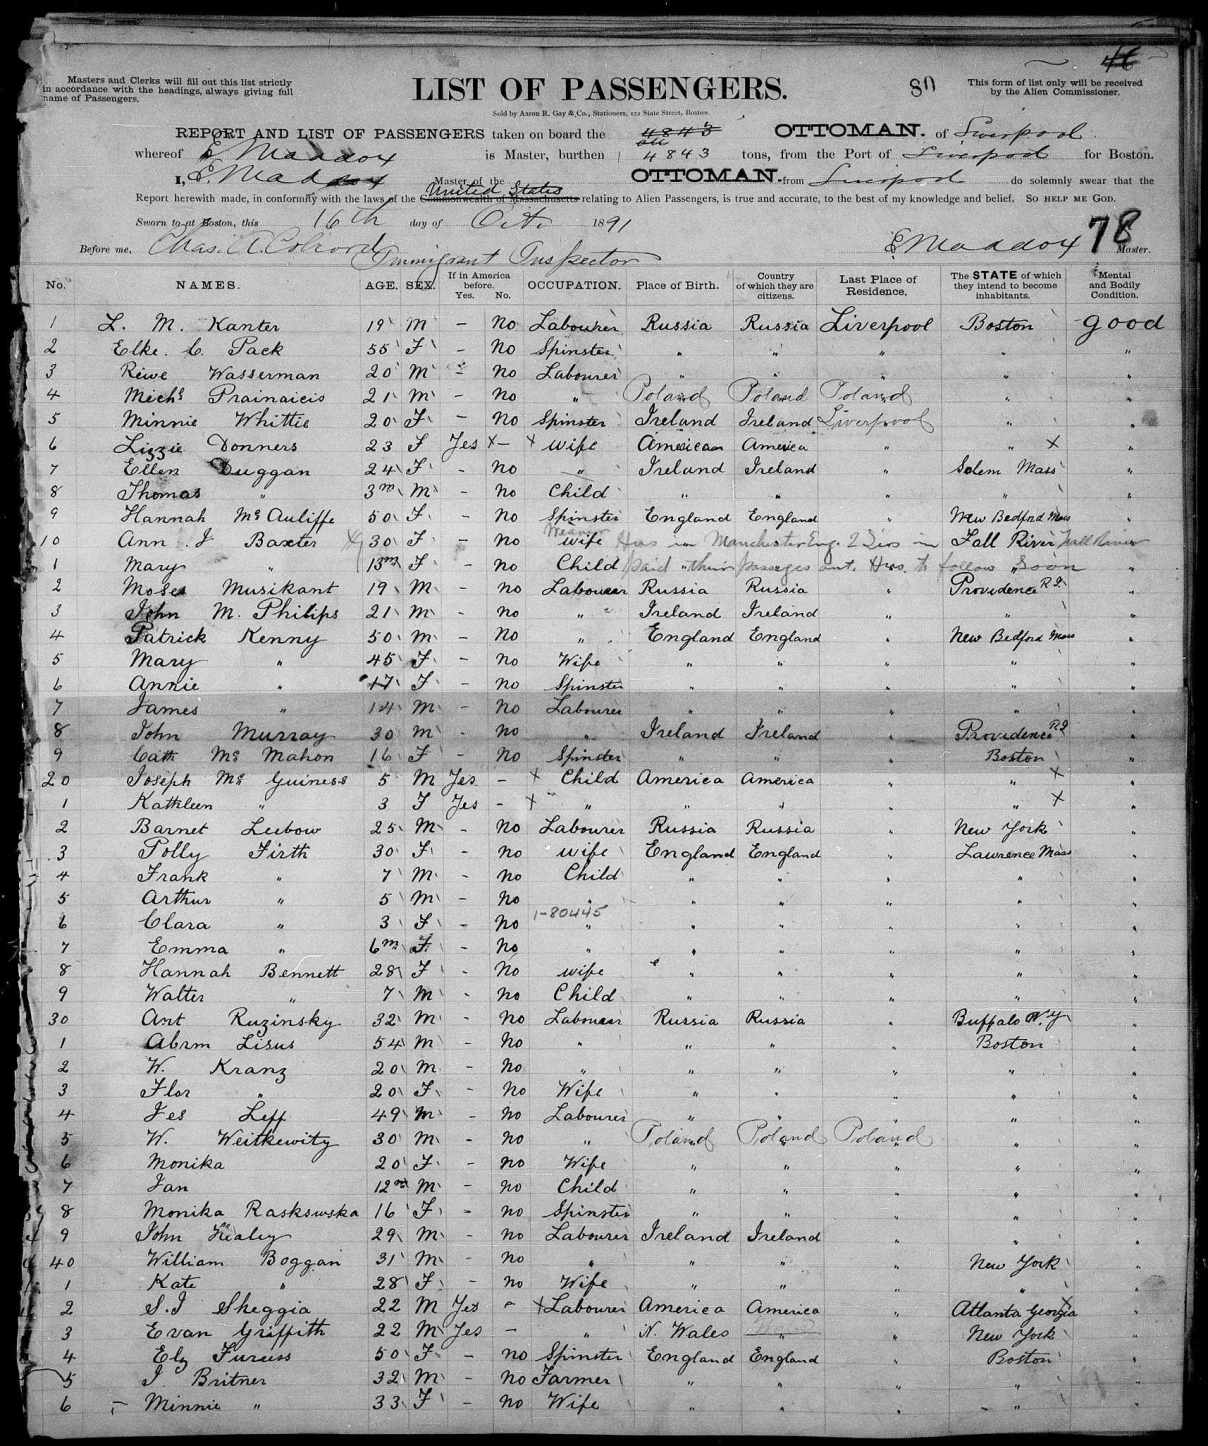 46
Masters and Clerks will fill out this list strictly
in accordance with the headings, always giving full
name of Passengers.
LIST OF PASSENGERS.
80
This form of list only will be received
by the Alien Commissioner.
Sold by Aaron R. Gay & Co., Stationers, 122 State Street, Boston.
REPORT AND LIST OF PASSENGERS taken on board the 4843 OTTOMAN. of Liverpool
whereof E Maddox is Master, burthen 4843 tons, from the Port of Liverpool for Boston.
I, E. Maddox Master of the OTTOMAN. from Liverpool do solemnly swear that the
United States
Report herewith made, in conformity with the laws of the Commonwealth of Massachusetts relating to Alien Passengers, is true and accurate, to the best of my knowledge and belief. SO HELP ME GOD.
Sworn to at Boston, this 16th day of Oct. 1891
Before me, Chas. Immigrant Inspector E Maddox 78 Master.
No. NAMES. AGE. SEX. If in America before. Yes. No. OCCUPATION. Place of Birth. Country of which they are citizens. Last Place of Residence. The STATE of which they intend to become inhabitants. Mental and Bodily Condition.
1 L. M. Kanter 19 M - No Labourer Russia Russia Liverpool Boston good
2 Elke. C. Pack 55 F - No Spinster " " " " "
3 Riwe Wasserman 20 M - No Labourer " " " " "
4 Mich^s Prainaicis 21 M - No " Poland Poland Poland " "
5 Minnie Whittie 20 F - No Spinster Ireland Ireland Liverpool " "
6 Lizzie Donners 23 F Yes x- x wife American America " " x "
7 Ellen Duggan 24 F - No " Ireland Ireland " Solem Mass "
8 Thomas " 3m M - No Child " " " " "
9 Hannah McAuliffe 50 F - No Spinster England England " New Bedford Mass "
10 Ann. J Baxter 30 F - No Weaver wife Hus in Manchester Eng. 2 Sis in Fall River Fall River
1 Mary " 13m F - No Child paid their passages but. Hus. to follow soon "
2 Moses Musikant 19 M - No Labourer Russia Russia " Providence R.I. "
3 John M. Philips 21 M - No " Ireland Ireland " " "
4 Patrick Kenny 50 M - No " England England " New Bedford Mass "
5 Mary " 45 F - No Wife " " " " "
6 Annie " 17 F - No Spinster " " " " "
7 James " 14 M - No Labourer " " " " "
8 John Murray 30 M - No " Ireland Ireland " Providence R.I. "
9 Cath Mc Mahon 16 F - No Spinster " " " Boston "
20 Joseph Mc Guiness 5 M Yes - x Child America America " " x "
1 Kathleen " 3 F Yes - x " " " " " x "
2 Barnet Leebow 25 M - No Labourer Russia Russia " New York "
3 Polly Firth 30 F - No wife England England " Lawrence Mass "
4 Frank " 7 M - No Child " " " " "
5 Arthur " 5 M - No " " " " " "
1-80445
6 Clara " 3 F - No " " " " " "
7 Emma " 6m F - No " " " " " "
8 Hannah Bennett 28 F - No wife " " " " "
9 Walter " 7 M - No Child " " " " "
30 Ant Ruzinsky 32 M - No Labourer Russia Russia " Buffalo N.Y "
1 Abrm Lisus 54 M - No " " " " Boston "
2 W. Kranz 20 M - No " " " " " "
3 Flor " 20 F - No Wife " " " " "
4 Jes Leff 49 M - No Labourer " " " " "
5 W. Weitkewity 30 M - No " Poland Poland Poland " "
6 Monika 20 F - No Wife " " " " "
7 Jan 12m M - No Child " " " " "
8 Monika Raskswska 16 F - No Spinster " " " " "
9 John Healey 29 M - No Labourer Ireland Ireland " " "
40 William Boggan 31 M - No " " " " New York "
1 Kate " 28 F - No Wife " " " " "
2 S.J Skeggia 22 M Yes - x Labourer America America " Atlanta Georgia x "
3 Evan Griffith 22 M Yes - " N. Wales " " New York "
4 Elz Furciss 50 F - No Spinster England England " Boston "
5 J Britner 32 M - No Farmer " " " " "
6 - Minnie " 33 F - No Wife " " " " "